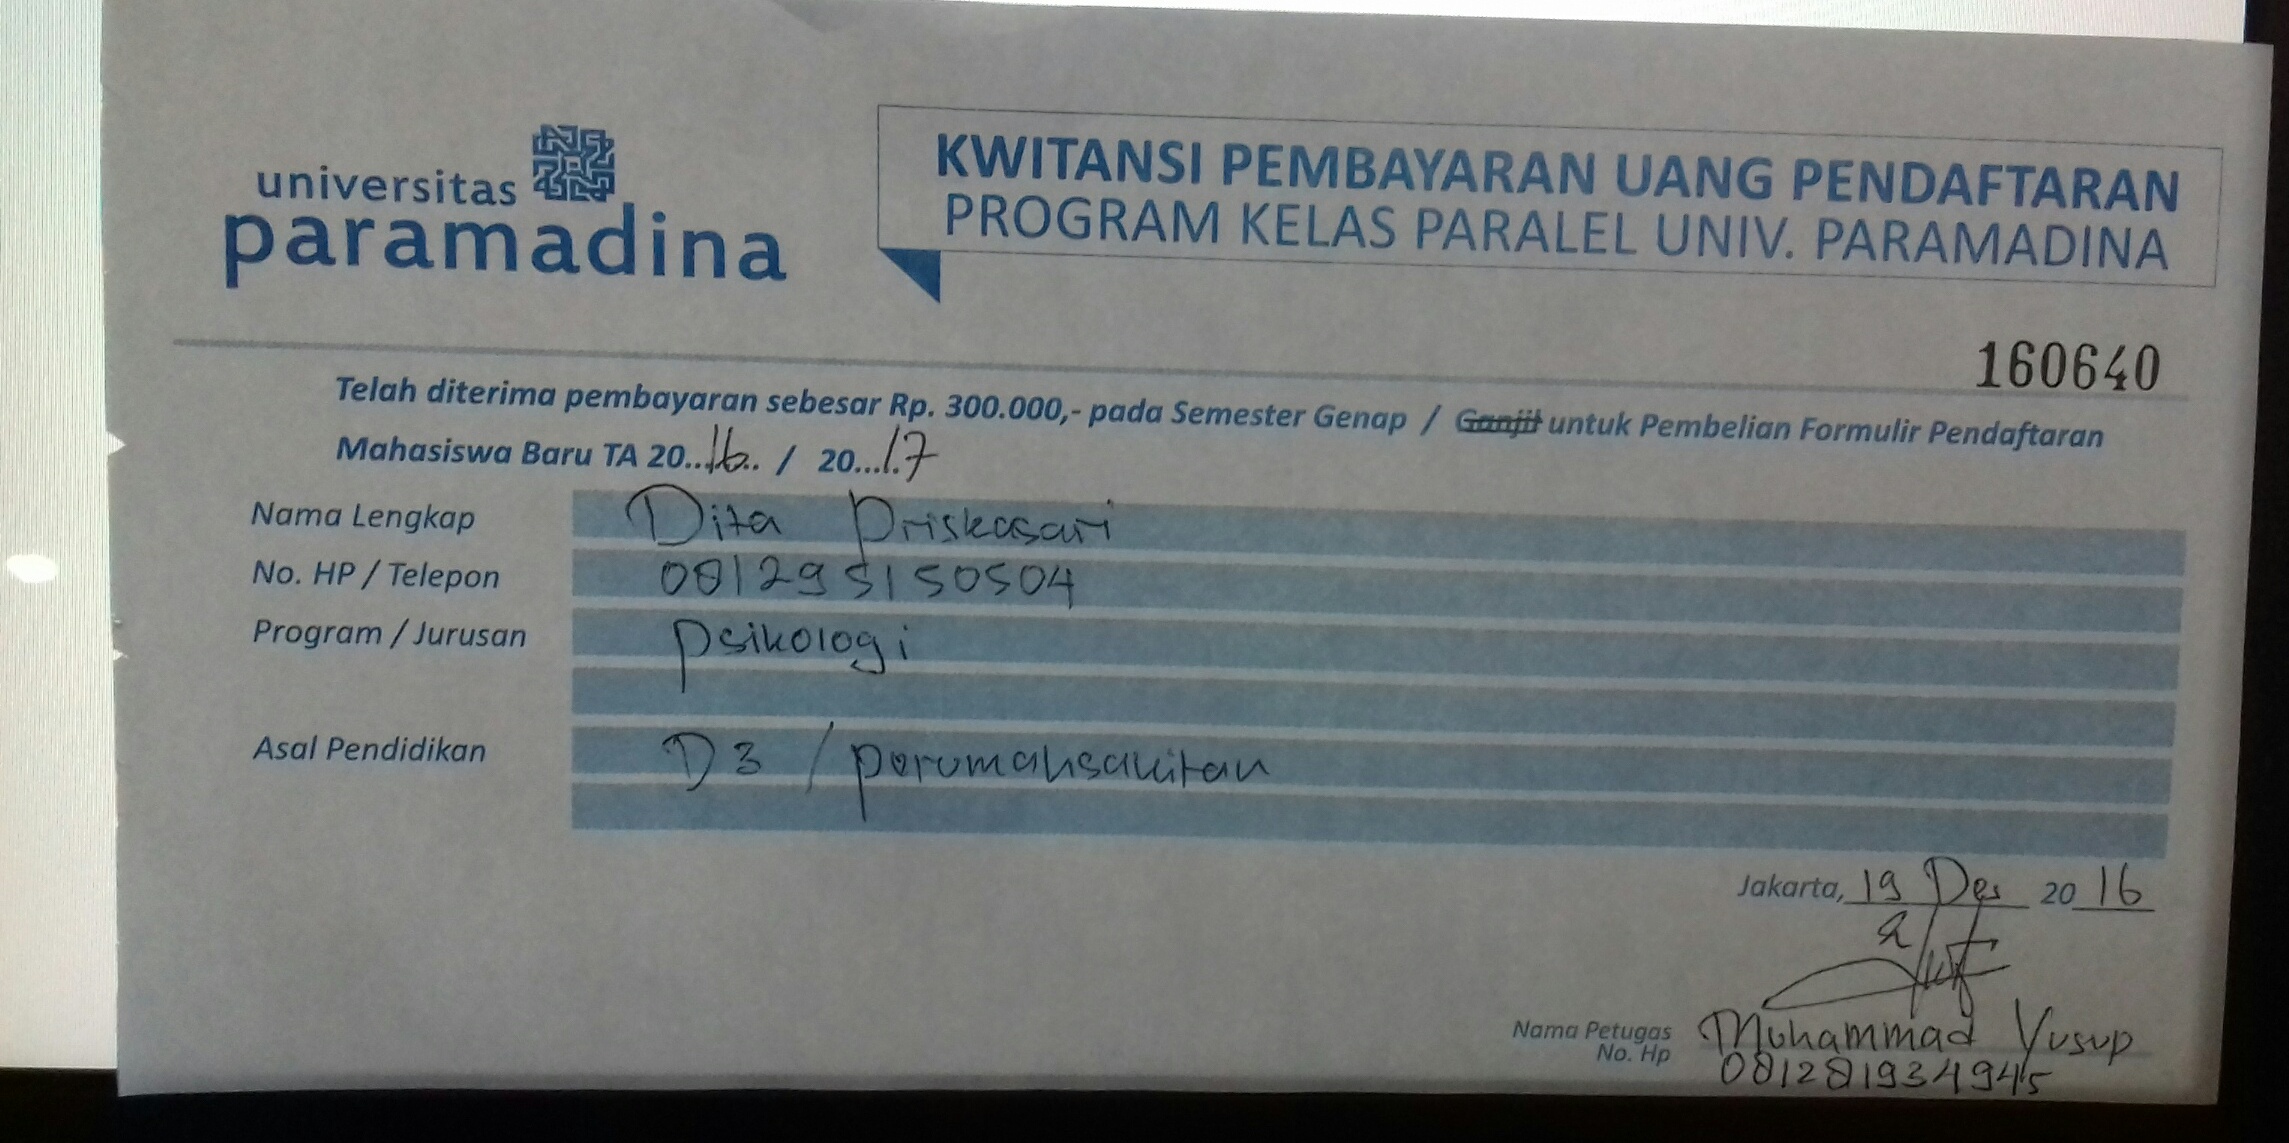 universitas
paramadina
KWITANSI PEMBAYARAN UANG PENDAFTARAN
PROGRAM KELAS PARALEL UNIV. PARAMADINA
160640
Telah diterima pembayaran sebesar Rp. 300.000,- pada Semester Genap / Ganjil untuk Pembelian Formulir Pendaftaran
Mahasiswa Baru TA 20..16.. / 20...17
Nama Lengkap Dita Priskasari
No. HP / Telepon 081295150504
Program / Jurusan Psikologi
Asal Pendidikan D3 / perumahsakitan
Jakarta, 19 Des 20 16
Nama Petugas Muhammad Yusup
No. Hp 081281934945